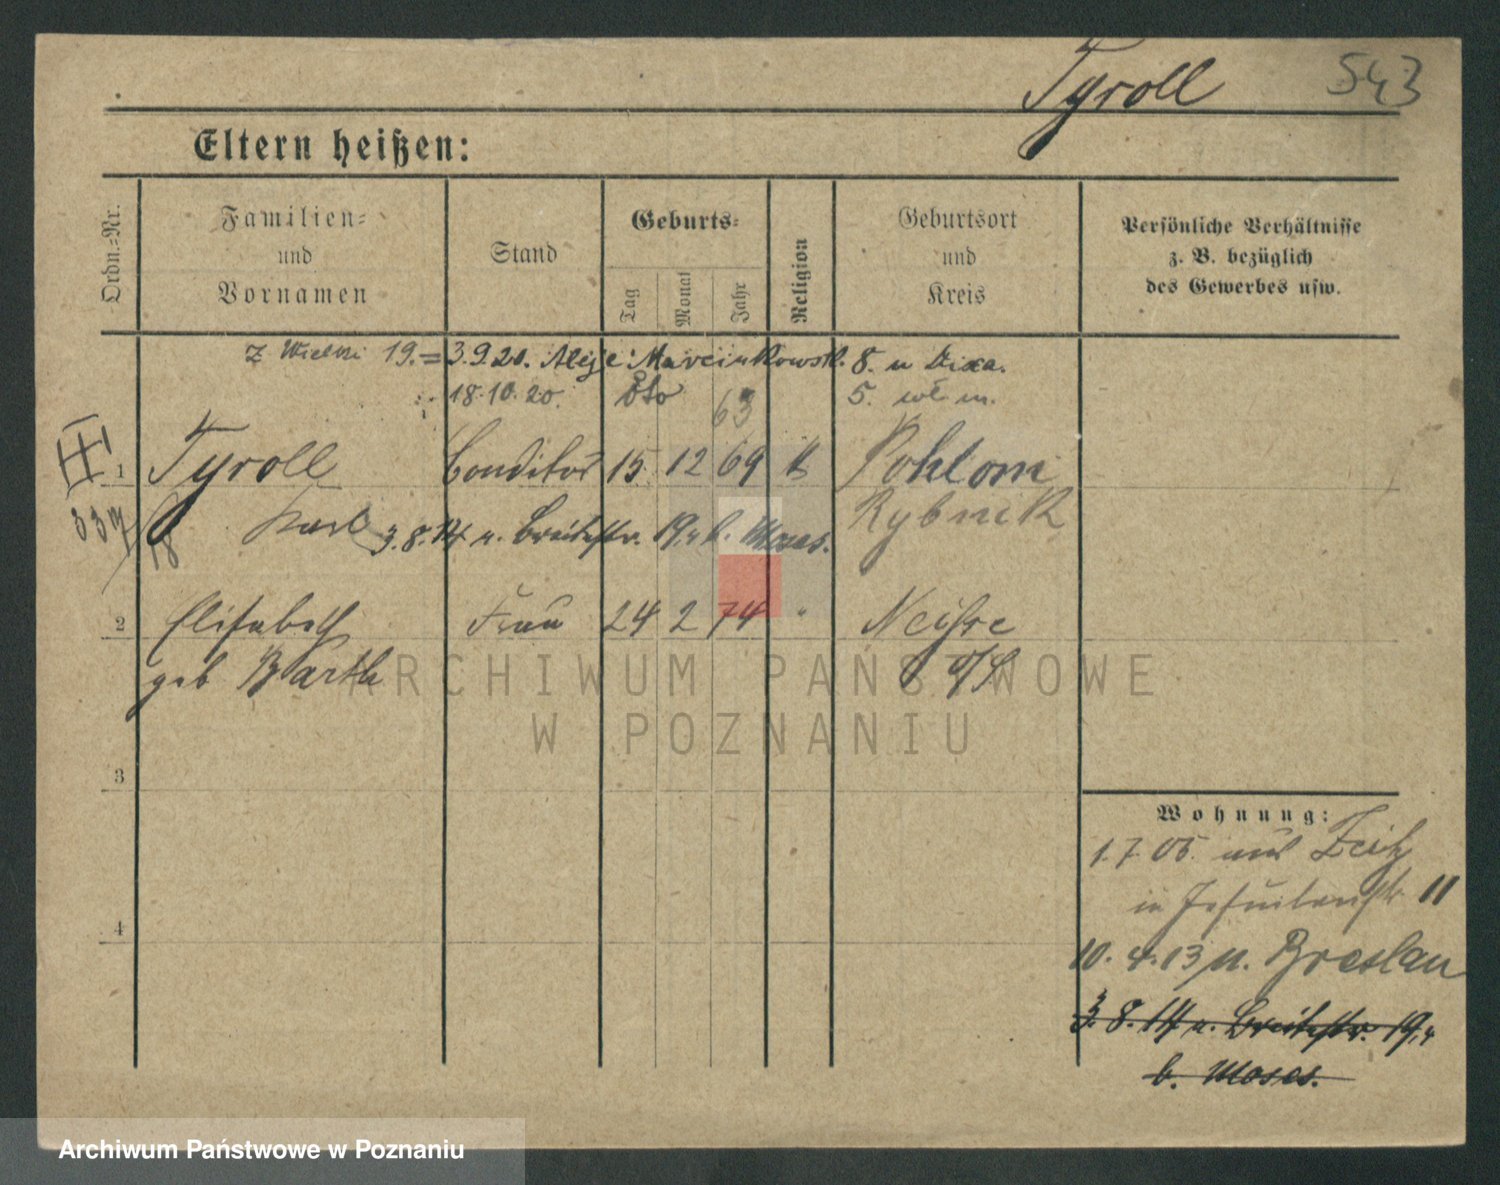 Tyroll 543
Eltern heißen:
Ordn.=Nr.
Familien=
und
Vornamen
Stand
Geburts=
Tag
Monat
Jahr
Religion
Geburtsort
und
Kreis
Persönliche Verhältnisse
z. B. bezüglich
des Gewerbes usw.
19.= 3.9.20. Aleje Marcinkowsk. 8. u
18.10.20. 5.
63
1 Tyroll Conditor 15 12 69 k Pohlom
337
18
Karl 3.8.14 u. Breitestr. 19,4 b. Moses. Rybnik
2 Elisabeth Frau 24 2 74 " Neisse
geb Barth O/S
3
4
Wohnung:
1.7.05. aus Zeitz
in Jesuitenstr. 11
10.4.13 u. Breslau
3.8.14 u. Breitestr. 19,4
b. Moses.
ARCHIWUM PAŃSTWOWE
W POZNANIU
Archiwum Państwowe w Poznaniu